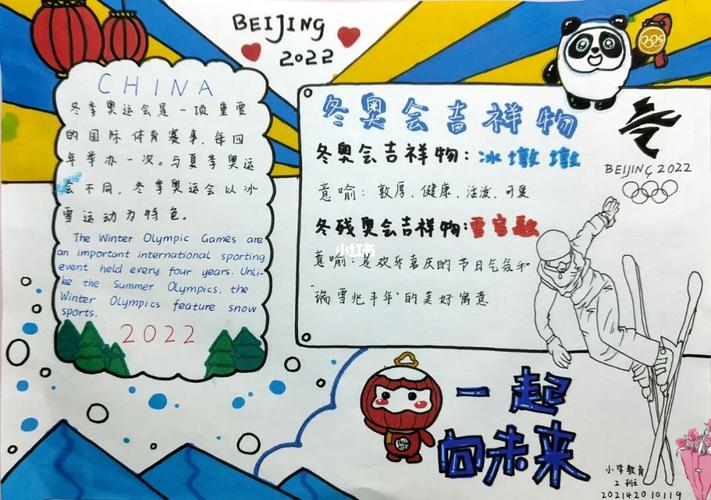 BEIJING
2022
CHINA
冬季奥运会是一项重要
的国际体育赛事,每四
年举办一次。与夏季奥运
会不同,冬季奥运会以冰
雪运动为特色。
The Winter Olympic Games are
an important international sporting
event held every four years. Unli-
ke the Summer Olympics, the
Winter Olympics feature snow
sports.
2022
冬奥会吉祥物
冬奥会吉祥物:冰墩墩
意喻:敦厚、健康、活泼、可爱
冬残奥会吉祥物:雪容融
意喻:是欢乐喜庆的节日气氛和
“瑞雪兆丰年”的美好寓意
小红书
BEIJING 2022
一起
向未来
小学教育
2班
202142010119